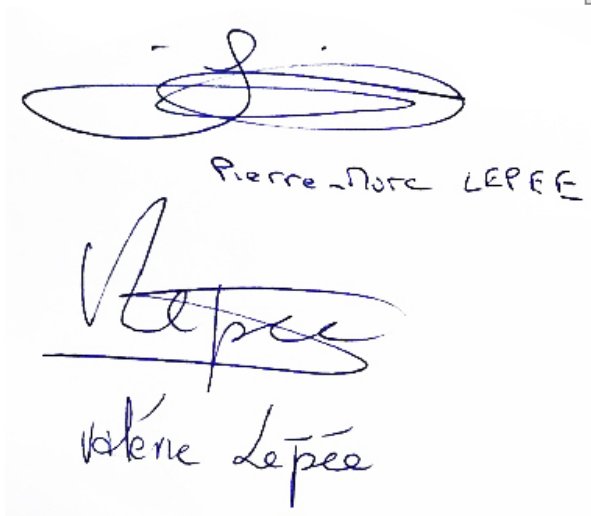 Pierre-Marc LEPEE
Vlepée
Valérie Lepée